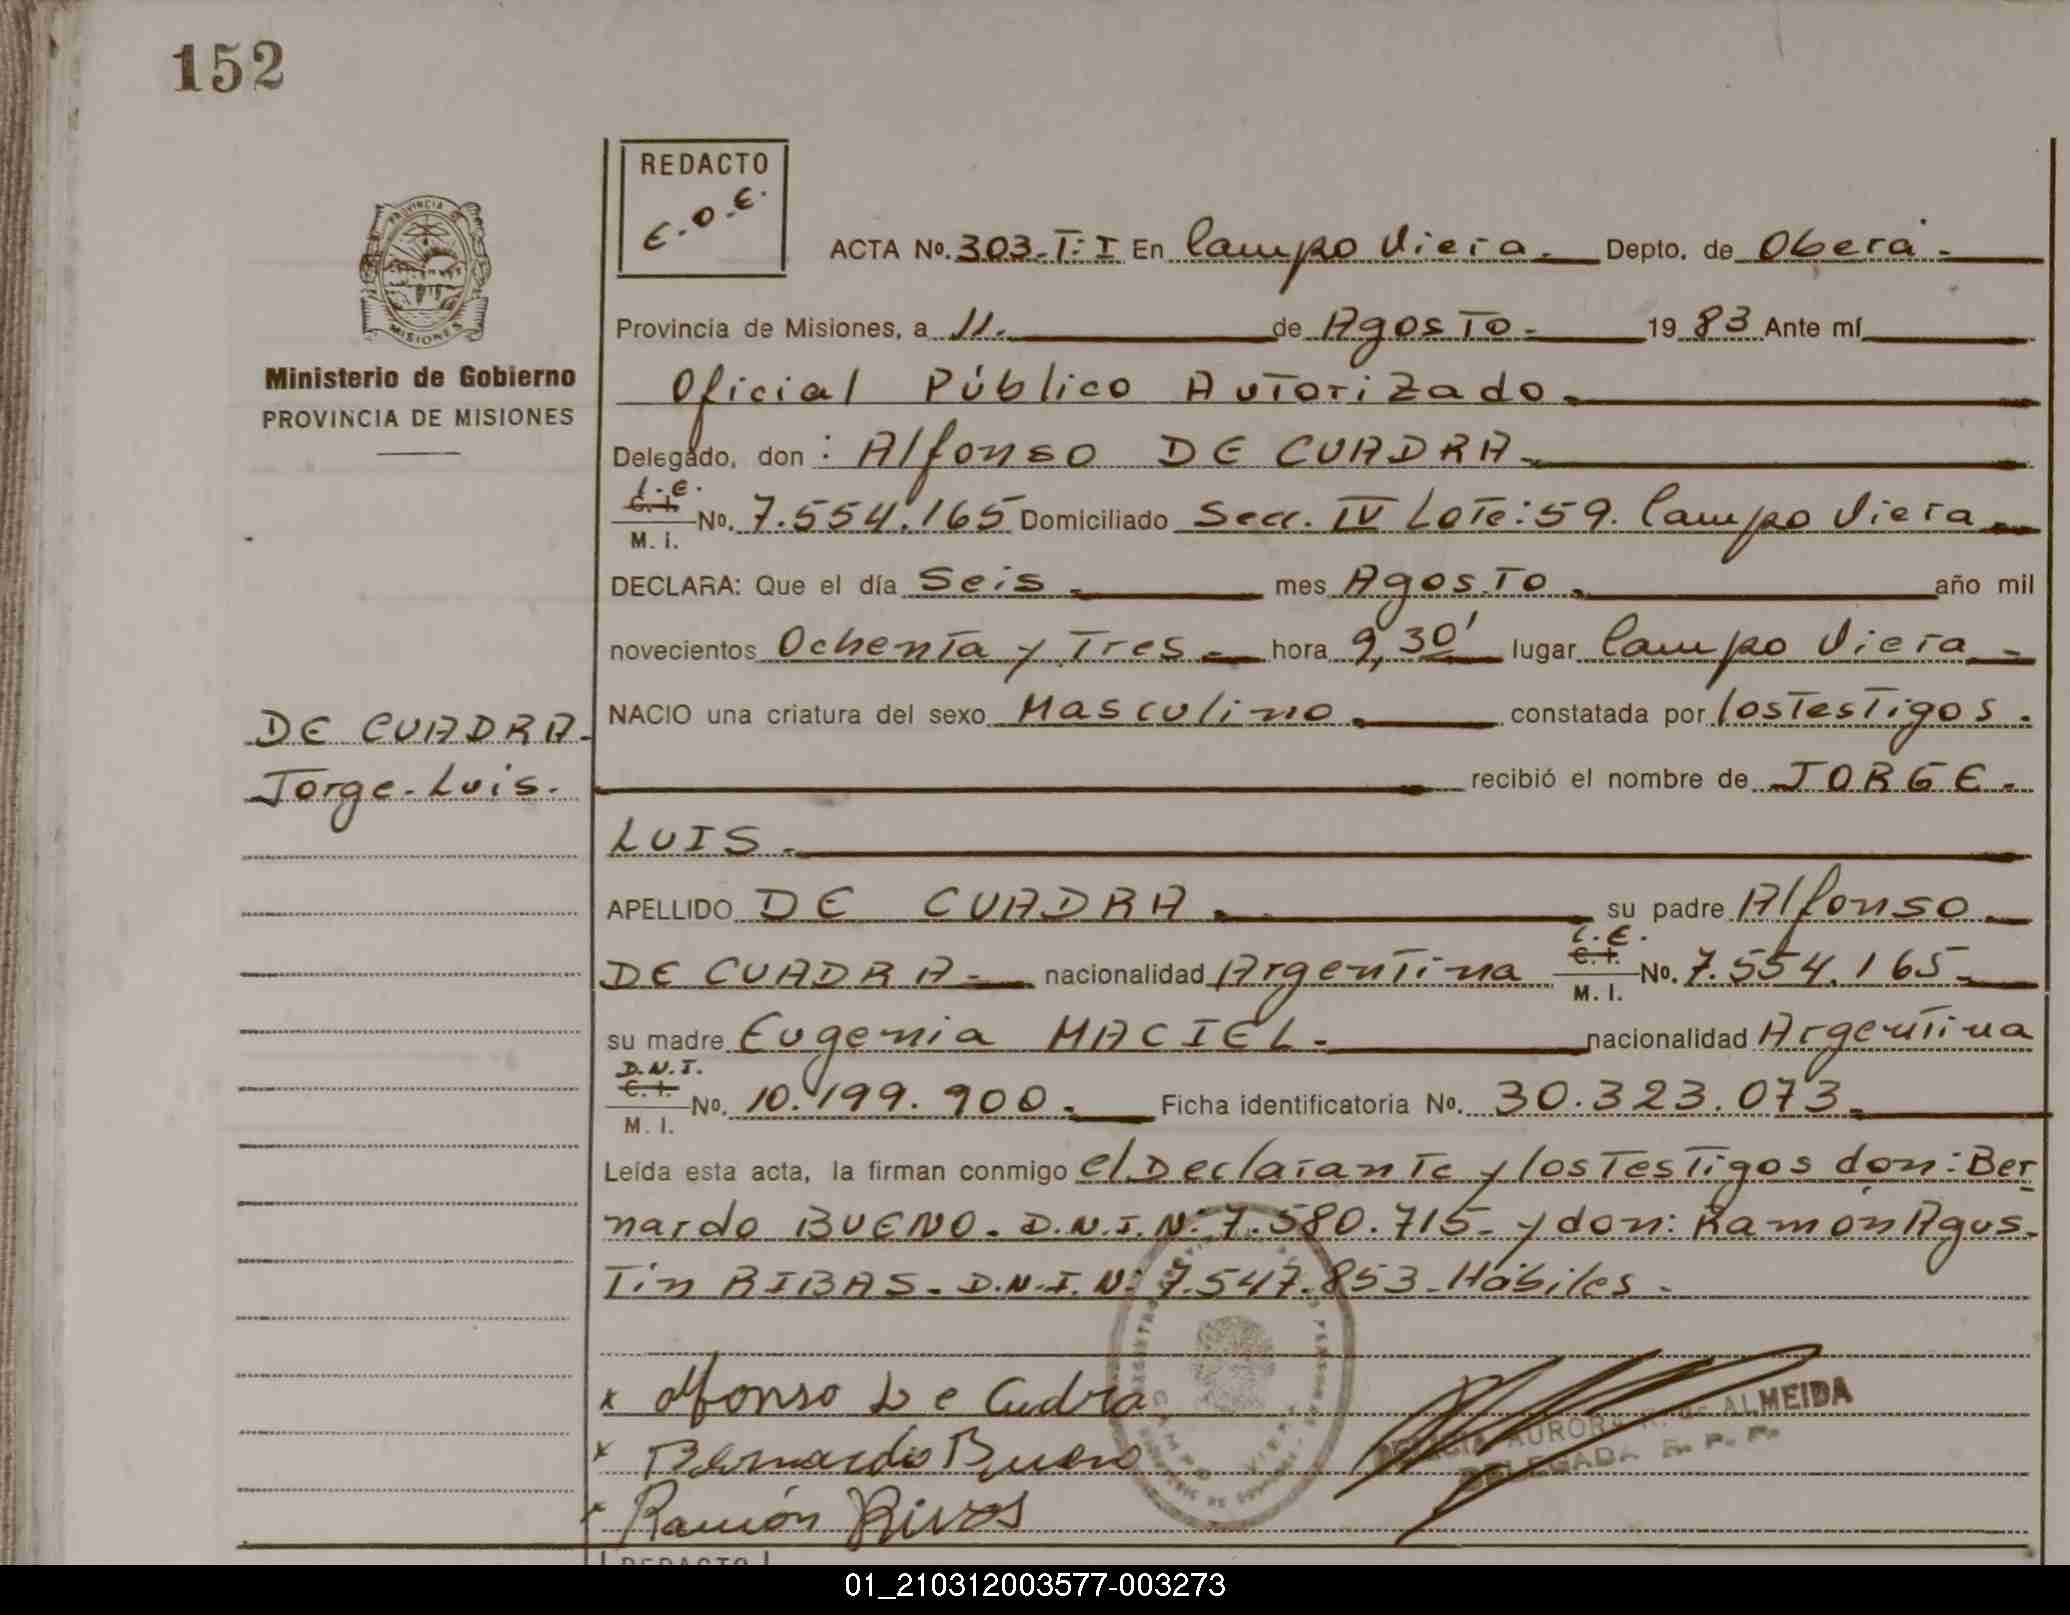 152
REDACTO
E.O.E.
PROVINCIA DE
MISIONES
Ministerio de Gobierno
PROVINCIA DE MISIONES
ACTA No. 303-T:I En Campo Viera.- Depto. de Oberá.-
Provincia de Misiones, a 11.- de Agosto.- 1983 Ante mí
Oficial Público Autorizado.-
Delegado, don: Alfonso DE CUADRA.-
L.E.
C.I.
M. I. No. 7.554.165 Domiciliado Secc. IV Lote: 59. Campo Viera.-
DECLARA: Que el día Seis.- mes Agosto.- año mil
novecientos Ochenta y Tres.- hora 9,30' lugar Campo Viera.-
NACIO una criatura del sexo Masculino.- constatada por los Testigos.
DE CUADRA.-
Jorge-Luis.-
recibió el nombre de JORGE.-
LUIS.-
APELLIDO DE CUADRA.- su padre Alfonso
DE CUADRA.- nacionalidad Argentina
L.E.
C.I.
M. I. No. 7.554.165.-
su madre Eugenia MACIEL.- nacionalidad Argentina
D.N.I.
C.I.
M. I. No. 10.199.900.- Ficha identificatoria No. 30.323.073.-
Leída esta acta, la firman conmigo el Declarante y los Testigos don: Ber-
nardo BUENO. D.N.I. Nº 7.580.715- y don: Ramón Agus-
Tin RIBAS. D.N.I. Nº 7.547.853-Hábiles.-
x Alfonso De Cudra
x Bernardo Bueno
x Ramón Rivas
CAMPO VIERA
AURORA R. de ALMEIDA
DELEGADA R. P. P.
REDACTO
01_210312003577-003273